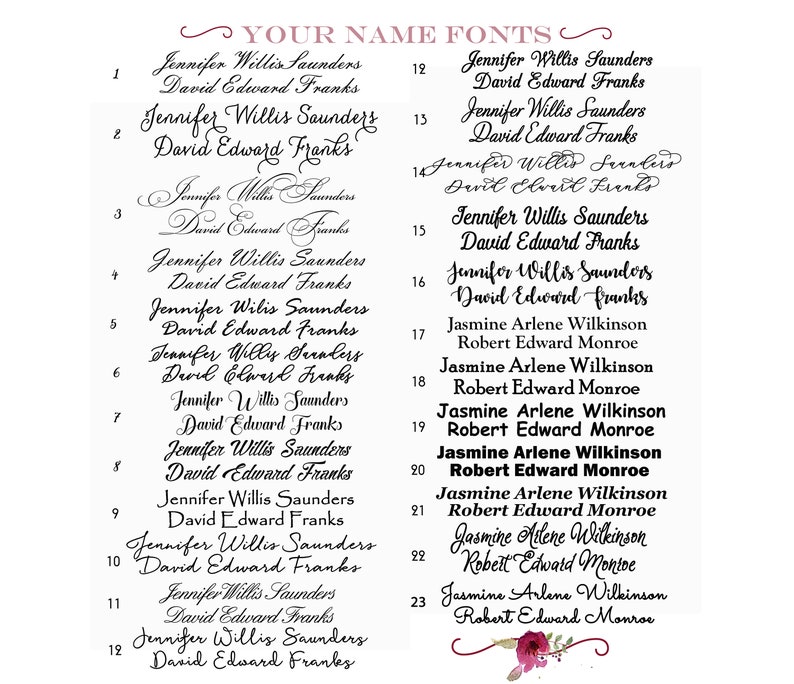 YOUR NAME FONTS
1
Jennifer Willis Saunders
David Edward Franks
2
Jennifer Willis Saunders
David Edward Franks
3
Jennifer Willis Saunders
David Edward Franks
4
Jennifer Willis Saunders
David Edward Franks
5
Jennifer Wilis Saunders
David Edward Franks
6
Jennifer Willis Saunders
David Edward Franks
7
Jennifer Willis Saunders
David Edward Franks
8
Jennifer Willis Saunders
David Edward Franks
9
Jennifer Willis Saunders
David Edward Franks
10
Jennifer Willis Saunders
David Edward Franks
11
Jennifer Willis Saunders
David Edward Franks
12
Jennifer Willis Saunders
David Edward Franks
12
Jennifer Willis Saunders
David Edward Franks
13
Jennifer Willis Saunders
David Edward Franks
14
Jennifer Willis Saunders
David Edward Franks
15
Jennifer Willis Saunders
David Edward Franks
16
Jennifer Willis Saunders
David Edward Franks
17
Jasmine Arlene Wilkinson
Robert Edward Monroe
18
Jasmine Arlene Wilkinson
Robert Edward Monroe
19
Jasmine Arlene Wilkinson
Robert Edward Monroe
20
Jasmine Arlene Wilkinson
Robert Edward Monroe
21
Jasmine Arlene Wilkinson
Robert Edward Monroe
22
Jasmine Arlene Wilkinson
Robert Edward Monroe
23
Jasmine Arlene Wilkinson
Robert Edward Monroe